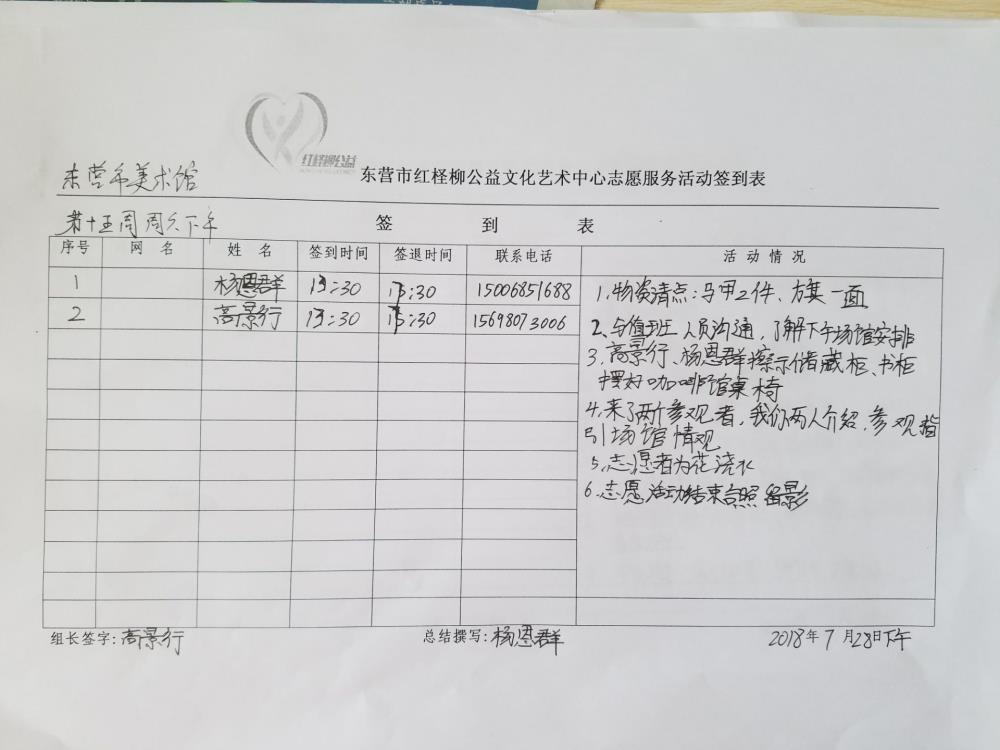 红柽柳公益
东营市美术馆
东营市红柽柳公益文化艺术中心志愿服务活动签到表
第十五周周六下午
签 到 表
序号 网 名 姓 名 签到时间 签退时间 联系电话 活 动 情 况
1 杨恩群 13:30 15:30 15006851688
2 高景行 13:30 15:30 15698073006
1、物资清点:马甲2件、方集一面
2、与值班人员沟通,了解下午场馆安排
3、高景行、杨恩群擦示储藏柜、书柜
摆好咖啡馆桌椅
4、来了两个参观者,我们两人介绍,参观指
引场馆情观
5、志愿者为花浇水
6、志愿活动结束合照留影
组长签字:高景行 总结撰写:杨恩群 2018年7月28日下午